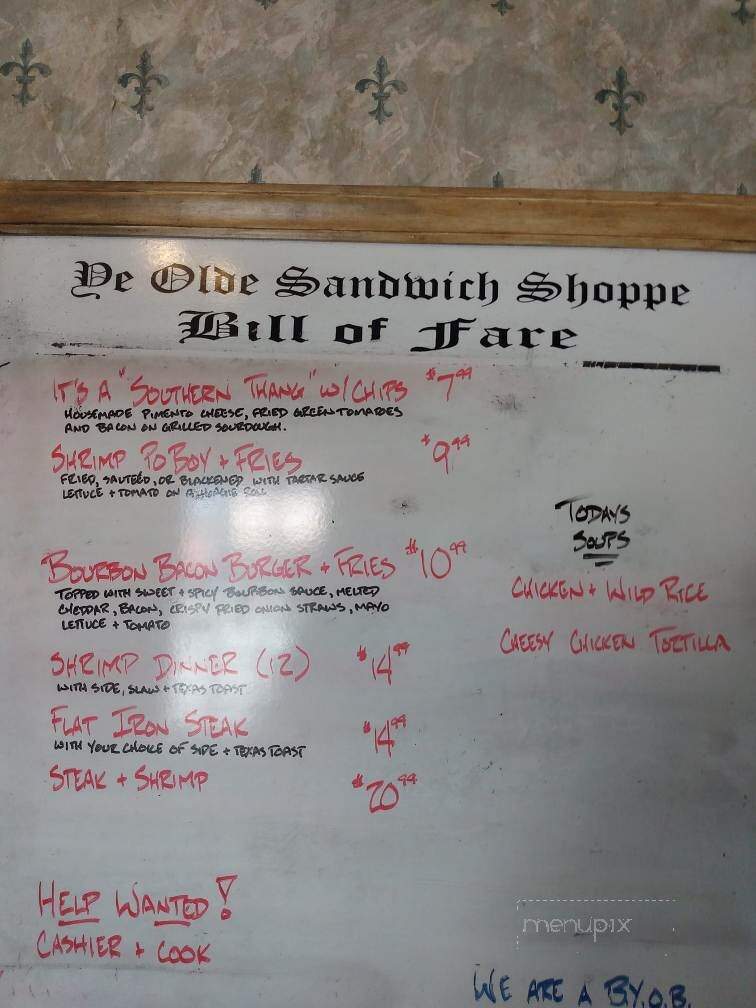 Ye Olde Sandwich Shoppe
Bill of Fare
IT'S A "SOUTHERN THANG" W/CHIPS $7.99
HOUSEMADE PIMENTO CHEESE, FRIED GREEN TOMATOES
AND BACON ON GRILLED SOURDOUGH.
SHRIMP PO BOY + FRIES $9.99
FRIED, SAUTEÉD, OR BLACKENED WITH TARTAR SAUCE
LETTUCE + TOMATO ON A HOAGIE ROLL
BOURBON BACON BURGER + FRIES $10.99
TOPPED WITH SWEET + SPICY BOURBON SAUCE, MELTED
CHEDDAR, BACON, CRISPY FRIED ONION STRAWS, MAYO
LETTUCE + TOMATO
SHRIMP DINNER (12) $14.99
WITH SIDE, SLAW + TEXAS TOAST
FLAT IRON STEAK $14.99
WITH YOUR CHOICE OF SIDE + TEXAS TOAST
STEAK + SHRIMP $20.99
HELP WANTED!
CASHIER + COOK
TODAYS
SOUPS
CHICKEN + WILD RICE
CHEESY CHICKEN TORTILLA
menupix
WE ARE A B.Y.O.B.